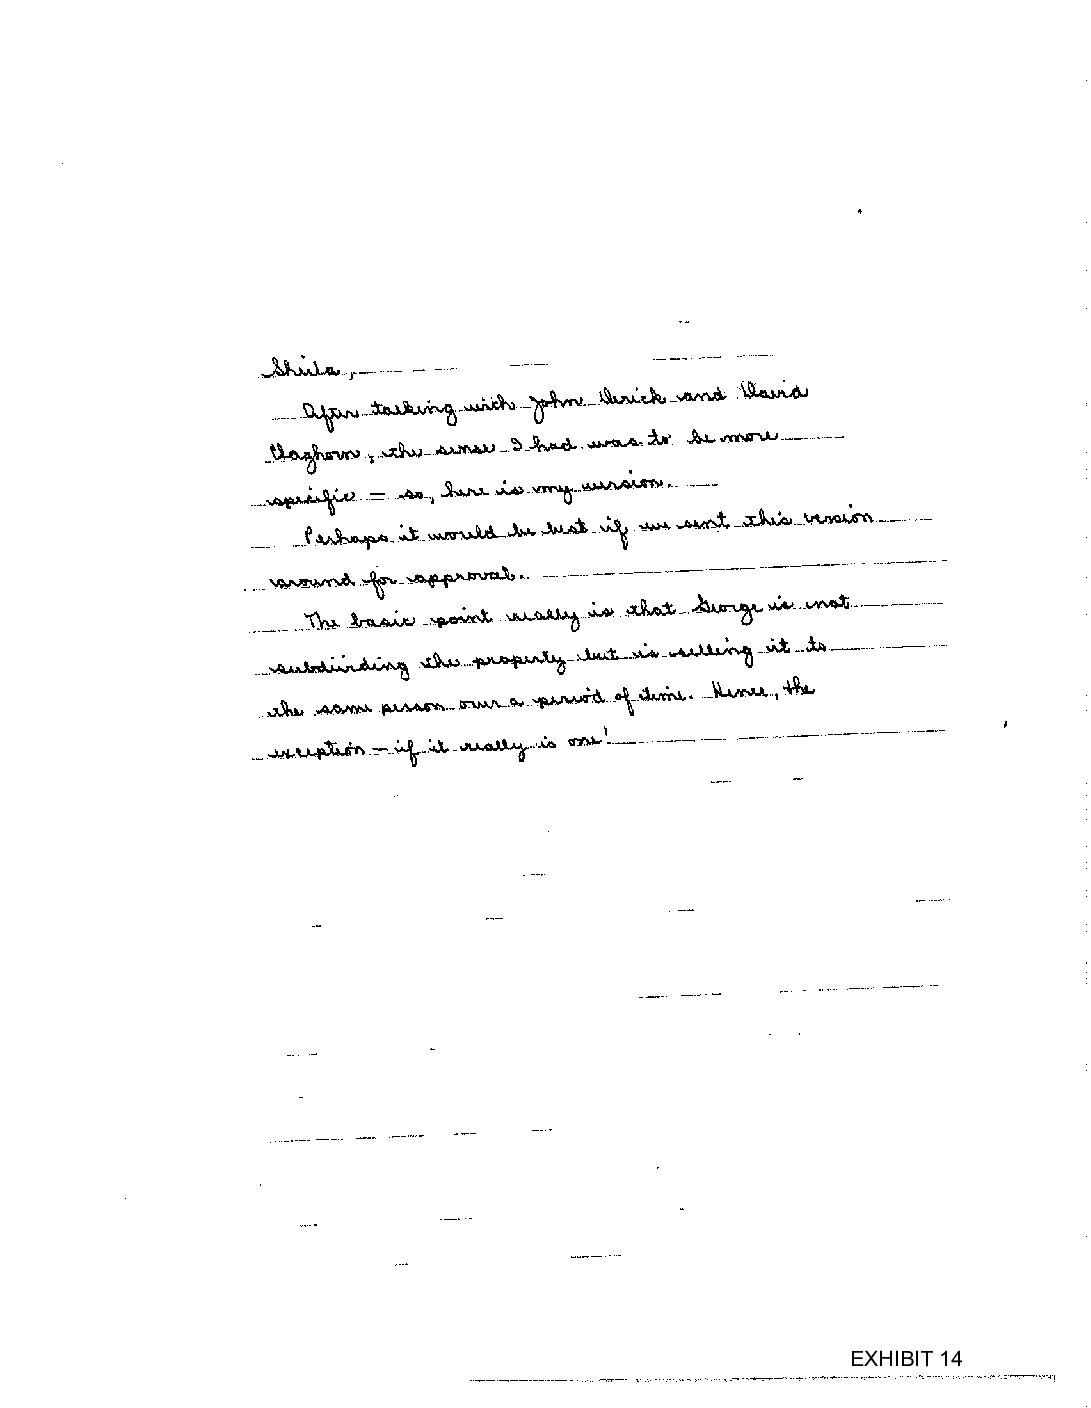 Sheila,
After talking with John Derick and David
Claghorn, the sense I had was to be more
specific – so, here is my version.
Perhaps it would be best if we sent this version
around for approval.
The basic point really is that George is not
subdividing the property but is selling it to
the same person over a period of time. Hence, the
exception – if it really is one!
EXHIBIT 14